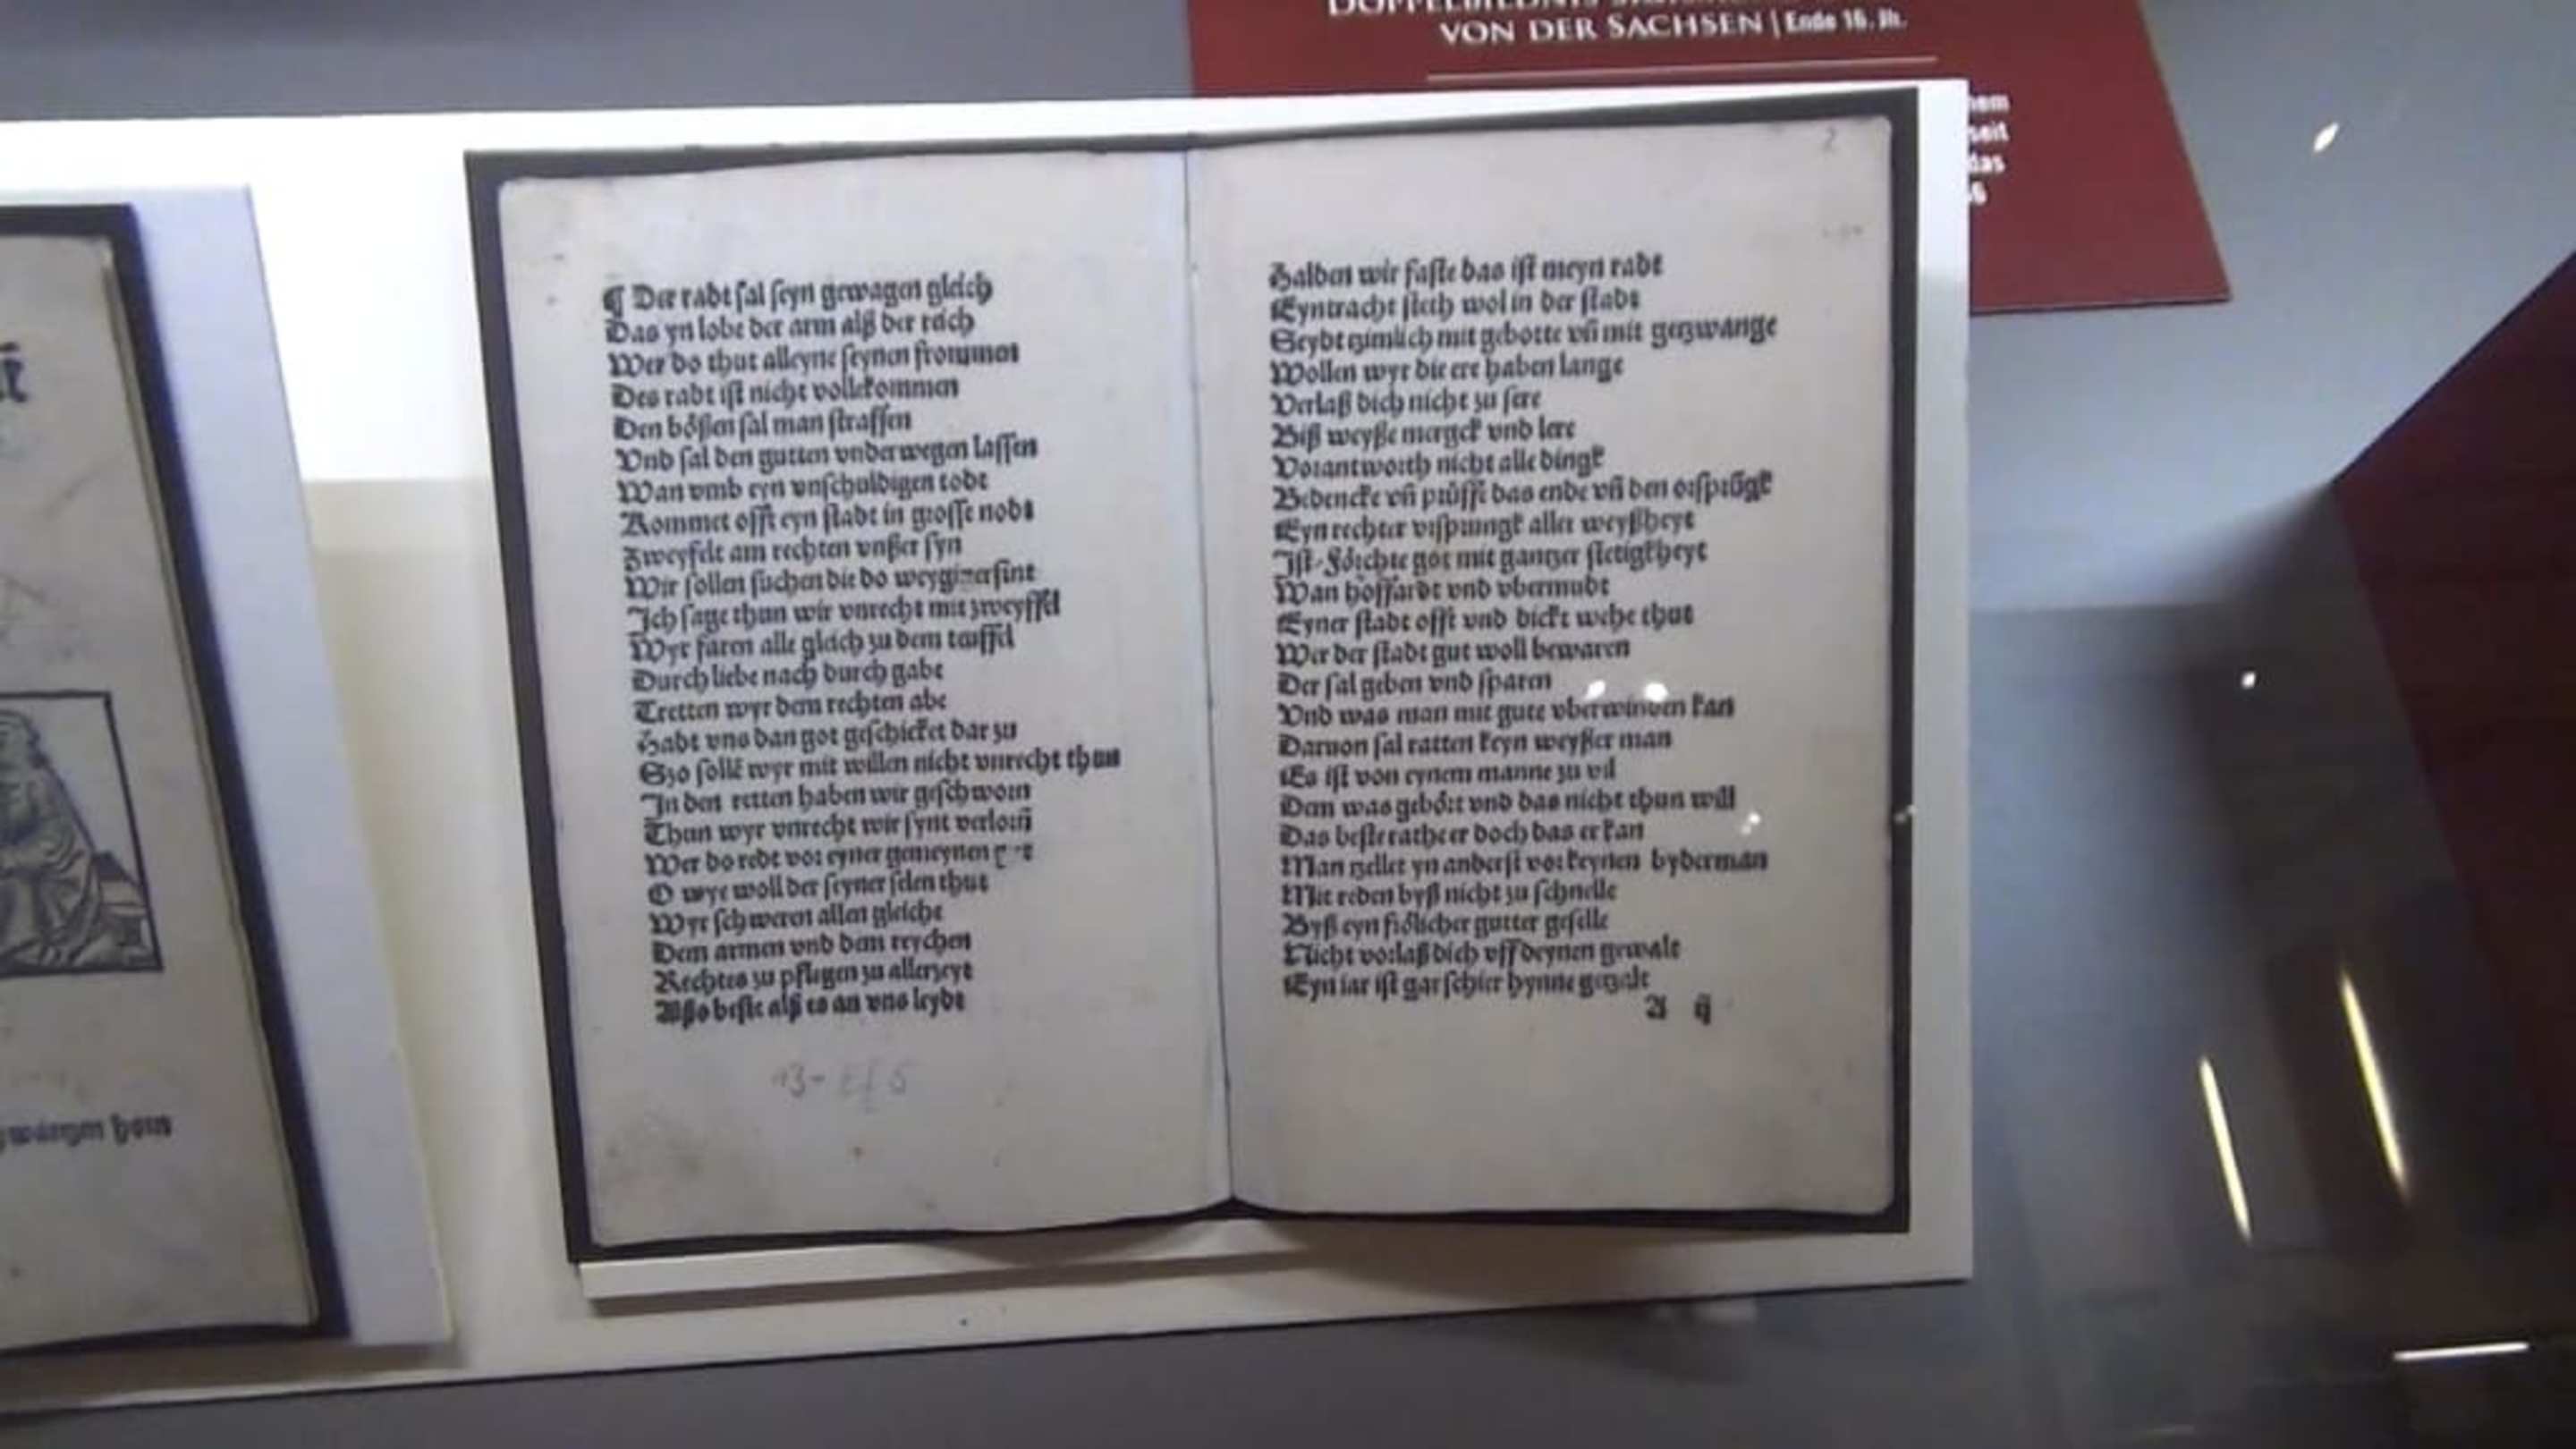 VON DER SACHSEN | Ende 16. Jh.
hem
seit
das
¶ Der radt sal seyn gewagen gleich
Das yn lobe der arm alß der reich
Wer do thut alleyne seynen frommen
Des radt ist nicht vollekommen
Den bößen sal man straffen
Vnd sal den gutten vnderwegen lassen
Wan vmb eyn vnschuldigen todt
Kommet offt eyn stadt in grosse nodt
Zweyfelt am rechten vnßer syn
Wir sollen suchen die do weyßer sint
Ich sage thun wir vnrecht mit zweyffel
Wyr faren alle gleich zu dem teuffel
Durch liebe nach durch gabe
Tretten wyr dem rechten abe
Habt vns dan got geschicket dar zu
Szo sollē wyr mit willen nicht vnrecht thun
In den retten haben wir geschworn
Thun wyr vnrecht wir synt verlorñ
Wer do redt vor eyner gemeynen
O wye woll der seyner selen thut
Wyr schweren allen gleiche
Dem armen vnd dem reychen
Rechtes zu pflegen zu allerzeyt
Alßo beste alß es an vns leydt
2
Halden wir faste das ist meyn radt
Eyntracht stech wol in der stadt
Seydt zimlich mit gebotte vñ mit gezwange
Wollen wyr die ere haben lange
Verlaß dich nicht zu sere
Biß weyße mergck vnd lere
Vorantworth nicht alle dingk
Bedencke vñ prüffe das ende vñ den orsprūgk
Eyn rechter vrsprungk aller weyßheyt
Ist. Förchte got mit gantzer stetigkheyt
Wan hoffardt vnd vbermudt
Eyner stadt offt vnd dickt wehe thut
Wer der stadt gut woll bewaren
Der sal geben vnd sparen
Vnd was man mit gute vberwinden kan
Daruon sal ratten keyn weyßer man
Es ist von eynem manne zu vil
Dem was gebört vnd das nicht thun will
Das beste rathe er doch das er kan
Man zellet yn anderst vor keynen byderman
Mit reden byß nicht zu schnelle
Byß eyn frölicher gutter geselle
Nicht vorlaß dich vff deynen gewalt
Eyn iar ist gar schier hynne gezalt
A ij